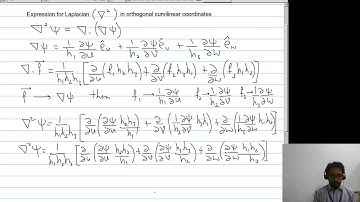 Expression for Laplacian (∇²) in orthogonal curvilinear coordinates
∇²ψ = ∇ . (∇ψ)
∇ψ = 1/h₁ ∂ψ/∂u ê_u + 1/h₂ ∂ψ/∂v ê_v + 1/h₃ ∂ψ/∂w ê_w
∇ . f⃗ = 1/h₁h₂h₃ [∂/∂u (f₁ h₂ h₃) + ∂/∂v (f₂ h₃ h₁) + ∂/∂w (f₃ h₁ h₂)]
f⃗ → ∇ψ then f₁ → 1/h₁ ∂ψ/∂u f₂ → 1/h₂ ∂ψ/∂v f₃ → 1/h₃ ∂ψ/∂w
∇²ψ = 1/h₁h₂h₃ [∂/∂u (∂ψ/∂u h₂h₃/h₁) + ∂/∂v (1/h₂ ∂ψ/∂v h₃h₁) + ∂/∂w (1/h₃ ∂ψ/∂w h₁h₂)]
∇²ψ = 1/h₁h₂h₃ [∂/∂u (∂ψ/∂u h₂h₃/h₁) + ∂/∂v (∂ψ/∂v h₃h₁/h₂) + ∂/∂w (∂ψ/∂w h₁h₂/h₃)]